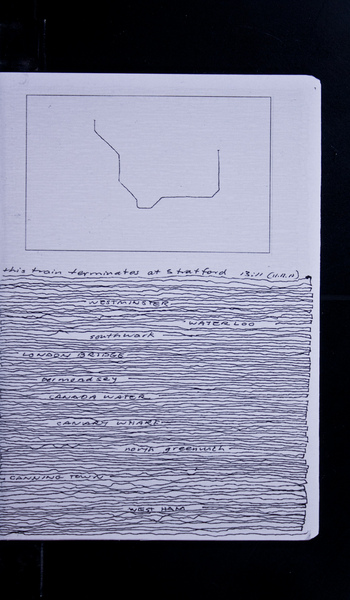 this train terminates at Stratford 13:11 (11.11.11)
WESTMINSTER
WATERLOO
southwark
LONDON BRIDGE
bermondsey
CANADA WATER
CANARY WHARF
north greenwich
CANNING TOWN
WEST HAM